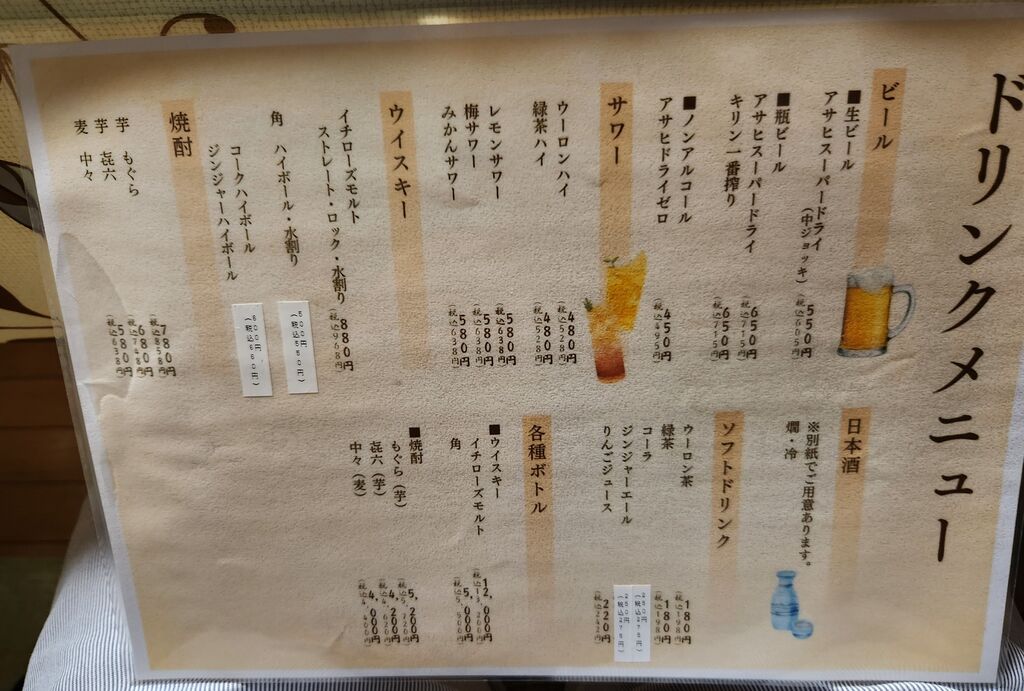 ドリンクメニュー
ビール
■生ビール
アサヒスーパードライ
(中ジョッキ)
550円
(税込605円)
■瓶ビール
アサヒスーパードライ
650円
(税込715円)
キリン一番搾り
650円
(税込715円)
■ノンアルコール
アサヒドライゼロ
450円
(税込495円)
サワー
ウーロンハイ
480円
(税込528円)
緑茶ハイ
480円
(税込528円)
レモンサワー
580円
(税込638円)
梅サワー
580円
(税込638円)
みかんサワー
580円
(税込638円)
ウイスキー
イチローズモルト
ストレート・ロック・水割り
880円
(税込968円)
角 ハイボール・水割り
500円
(税込550円)
コークハイボール
ジンジャーハイボール
600円
(税込660円)
焼酎
芋 もぐら
780円
(税込858円)
芋 㐂六
680円
(税込748円)
麦 中々
580円
(税込638円)
日本酒
※別紙でご用意あります。
燗・冷
ソフトドリンク
ウーロン茶
180円
(税込198円)
緑茶
180円
(税込198円)
コーラ
250円
(税込275円)
ジンジャーエール
250円
(税込275円)
りんごジュース
220円
(税込242円)
各種ボトル
■ウイスキー
イチローズモルト
12,000円
角
5,000円
(税込5,500円)
■焼酎
もぐら(芋)
5,200円
(税込5,720円)
㐂六(芋)
4,200円
(税込4,620円)
中々(麦)
4,000円
(税込4,400円)